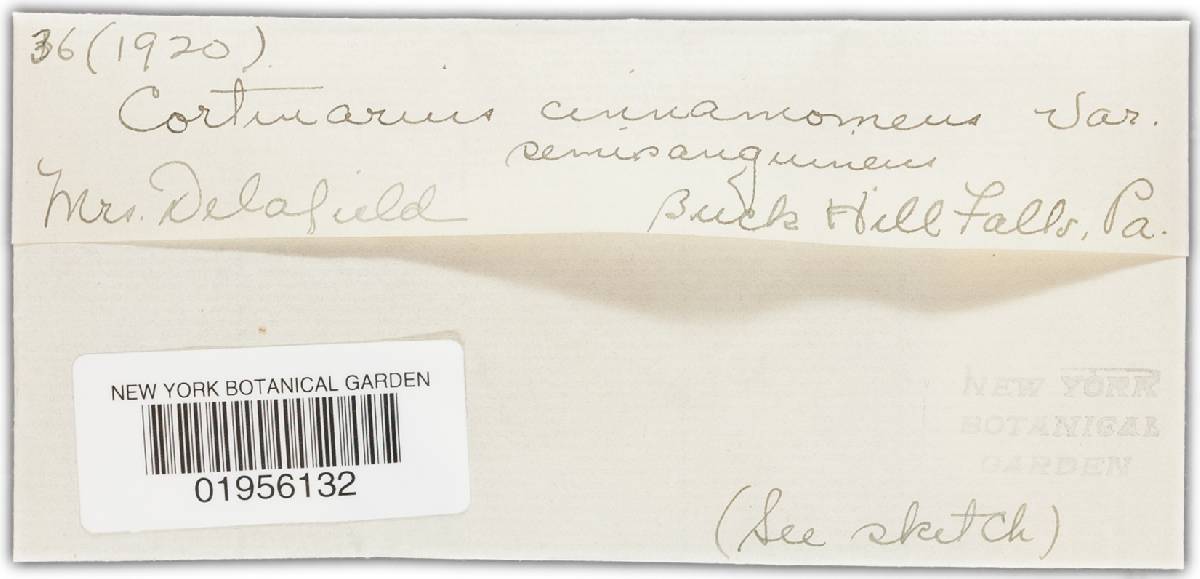 36 (1920)
Cortinarius cinnamomeus Var.
semisanguineus
Mrs. Delafield Buck Hill Falls, Pa.
NEW YORK BOTANICAL GARDEN
01956132
NEW YORK
BOTANICAL
GARDEN
(See sketch)